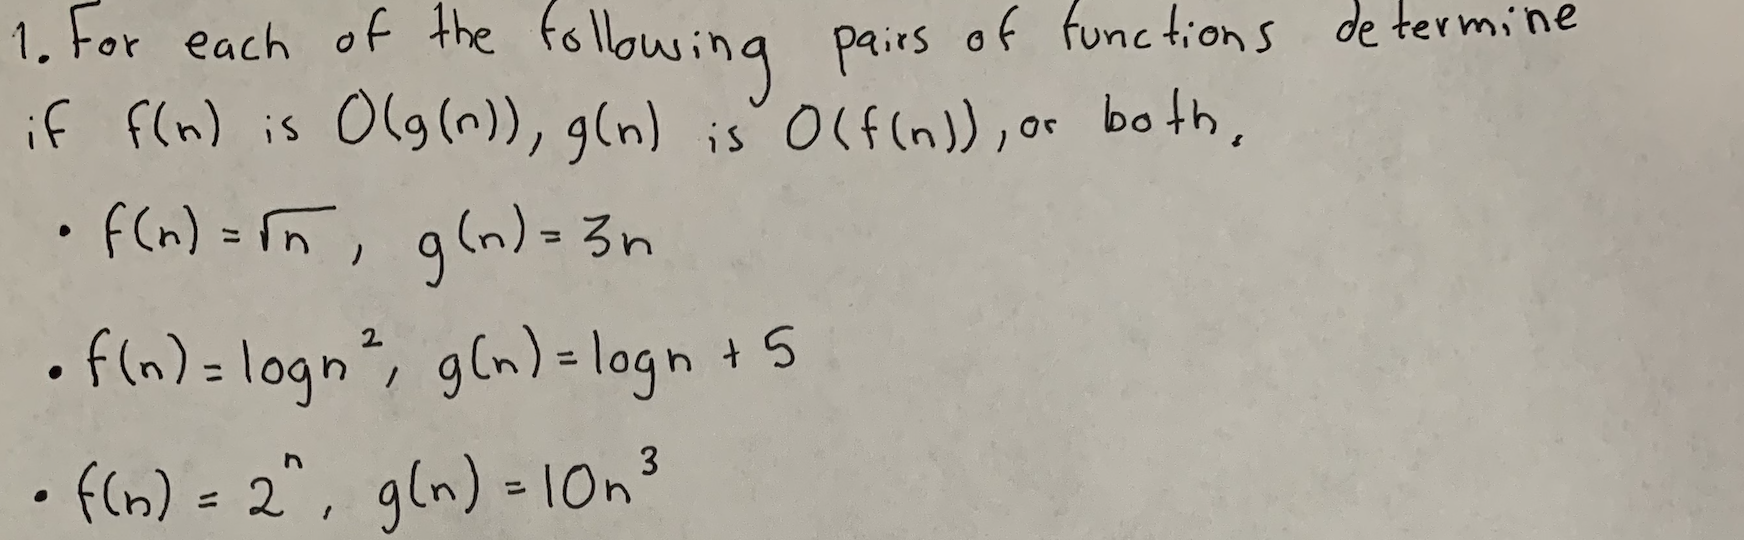 1. For each of the following pairs of functions determine
if f(n) is O(g(n)), g(n) is O(f(n)), or both.
• f(n) = √n, g(n) = 3n
• f(n) = logn², g(n) = logn + 5
• f(n) = 2ⁿ, g(n) = 10n³